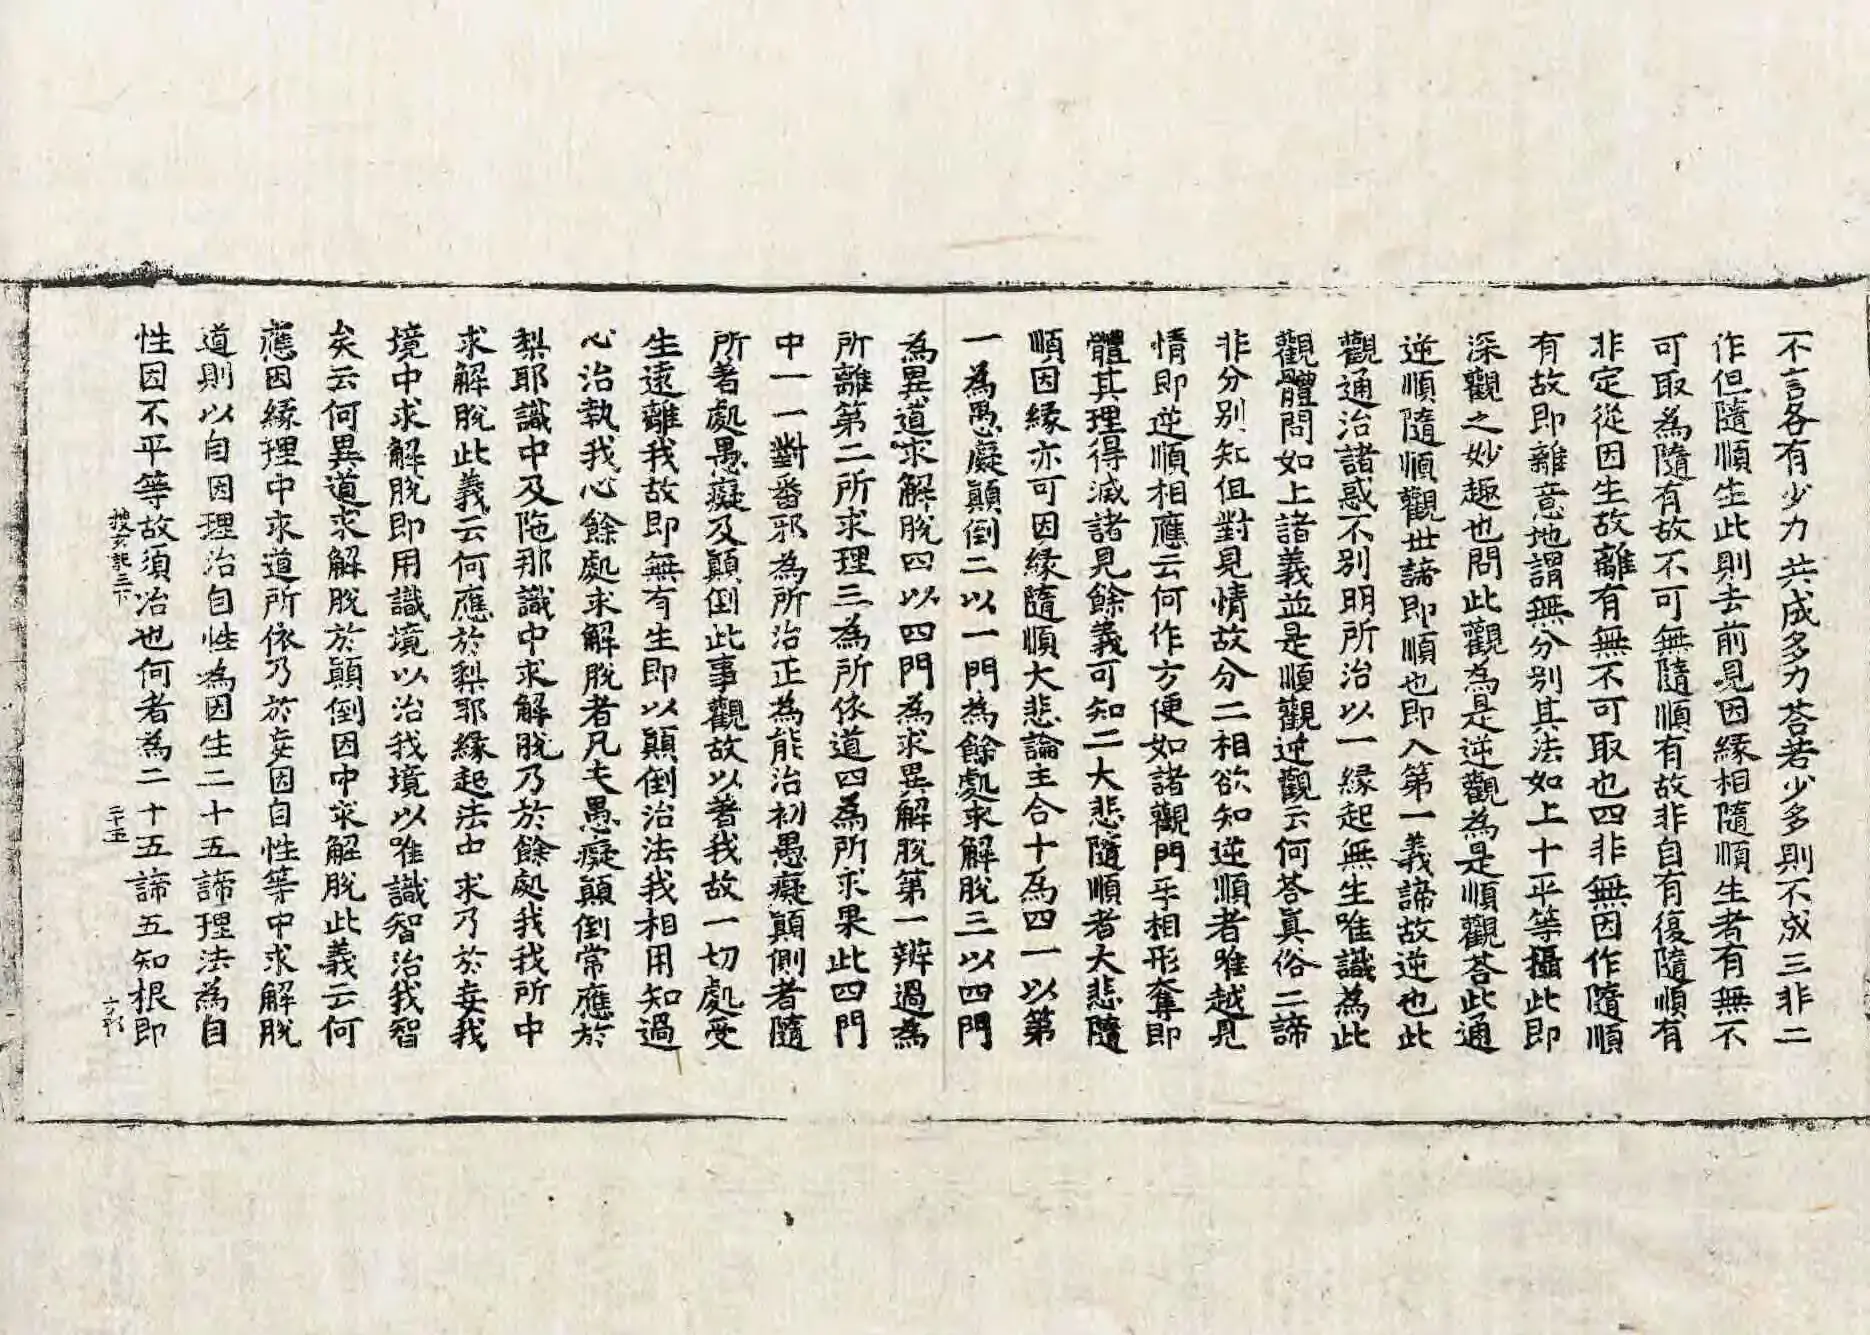 不言各有少力共成多力荅若少多則不成三非二
作但隨順生此則去前見因緣相隨順生者有無不
可取為隨有故不可無隨順有故非自有復隨順有
非定從因生故離有無不可取也四非無因作隨順
有故即離意地謂無分別其法如上十平等攝此即
深觀之妙趣也問此觀為是逆觀為是順觀荅此通
逆順隨順觀世諦即順也即入第一義諦故逆也此
觀通治諸惑不別明所治以一緣起無生唯識為此
觀體問如上諸義並是順觀逆觀云何荅真俗二諦
非分別知但對見情故分二相欲知逆順者唯越見
情即逆順相應云何作方便如諸觀門乎相形奪即
體其理得滅諸見餘義可知二大悲隨順者大悲隨
順因緣亦可因緣隨順大悲論主合十為四一以第
一為愚癡顛倒二以一門為餘處求解脫三以四門
為異道求解脫四以四門為求異解脫第一辨過為
所離第二所求理三為所依道四為所求果此四門
中一一對番邪為所治正為能治初愚癡顛倒者隨
所著處愚癡及顛倒此事觀故以著我故一切處受
生遠離我故即無有生即以顛倒治法我相用知過
心治執我心餘處求解脫者凡夫愚癡顛倒常應於
梨耶識中及陁那識中求解脫乃於餘處我我所中
求解脫此義云何應於梨耶緣起法中求乃於妄我
境中求解脫即用識境以治我境以唯識智治我智
矣云何異道求解脫於顛倒因中求解脫此義云何
應因緣理中求道所依乃於妄因自性等中求解脫
道則以自因理治自性為因生二十五諦理法為自
性因不平等故須治也何者為二十五諦五知根即
搜玄記三下
二十五